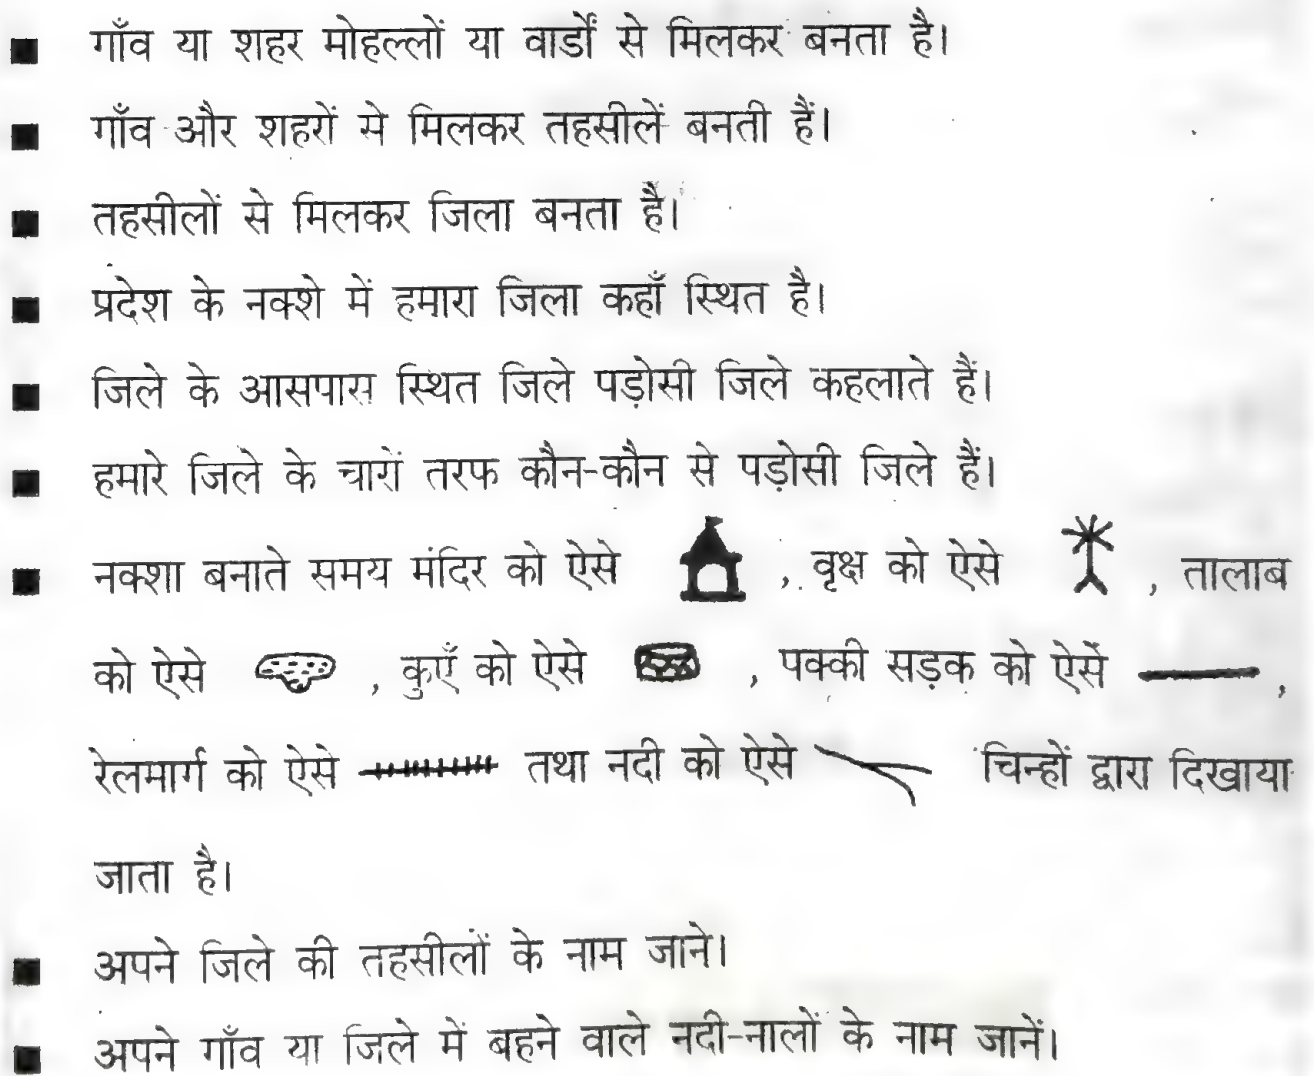 गाँव या शहर मोहल्लों या वार्डों से मिलकर बनता है।
गाँव और शहरों से मिलकर तहसीलें बनती हैं।
तहसीलों से मिलकर जिला बनता है।
प्रदेश के नक्शे में हमारा जिला कहाँ स्थित है।
जिले के आसपास स्थित जिले पड़ोसी जिले कहलाते हैं।
हमारे जिले के चारों तरफ कौन-कौन से पड़ोसी जिले हैं।
नक्शा बनाते समय मंदिर को ऐसे , वृक्ष को ऐसे , तालाब
को ऐसे , कुएँ को ऐसे , पक्की सड़क को ऐसें ,
रेलमार्ग को ऐसे तथा नदी को ऐसे चिन्हों द्वारा दिखाया
जाता है।
अपने जिले की तहसीलों के नाम जाने।
अपने गाँव या जिले में बहने वाले नदी-नालों के नाम जानें।